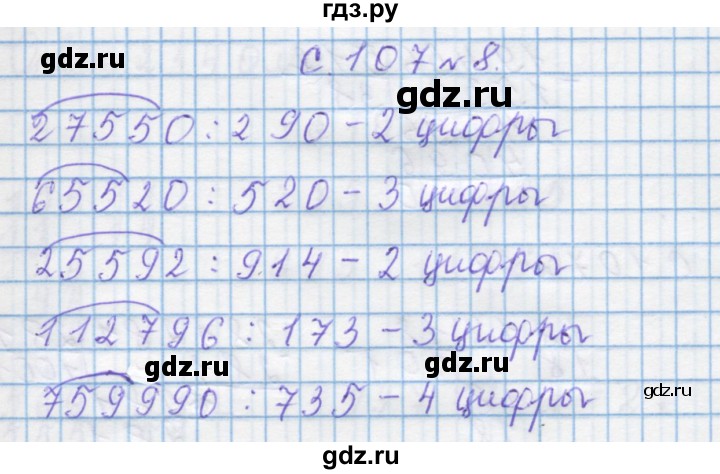 гдз.ру
gdz.ru
с. 107 № 8.
gdz.ru
27550 : 290 – 2 цифры
65520 : 520 – 3 цифры
gdz.ru
gdz.ru
25592 : 914 – 2 цифры
112796 : 173 – 3 цифры
gdz.ru
gdz.ru
759990 : 735 – 4 цифры
gdz.ru
gdz.ru
gdz.ru